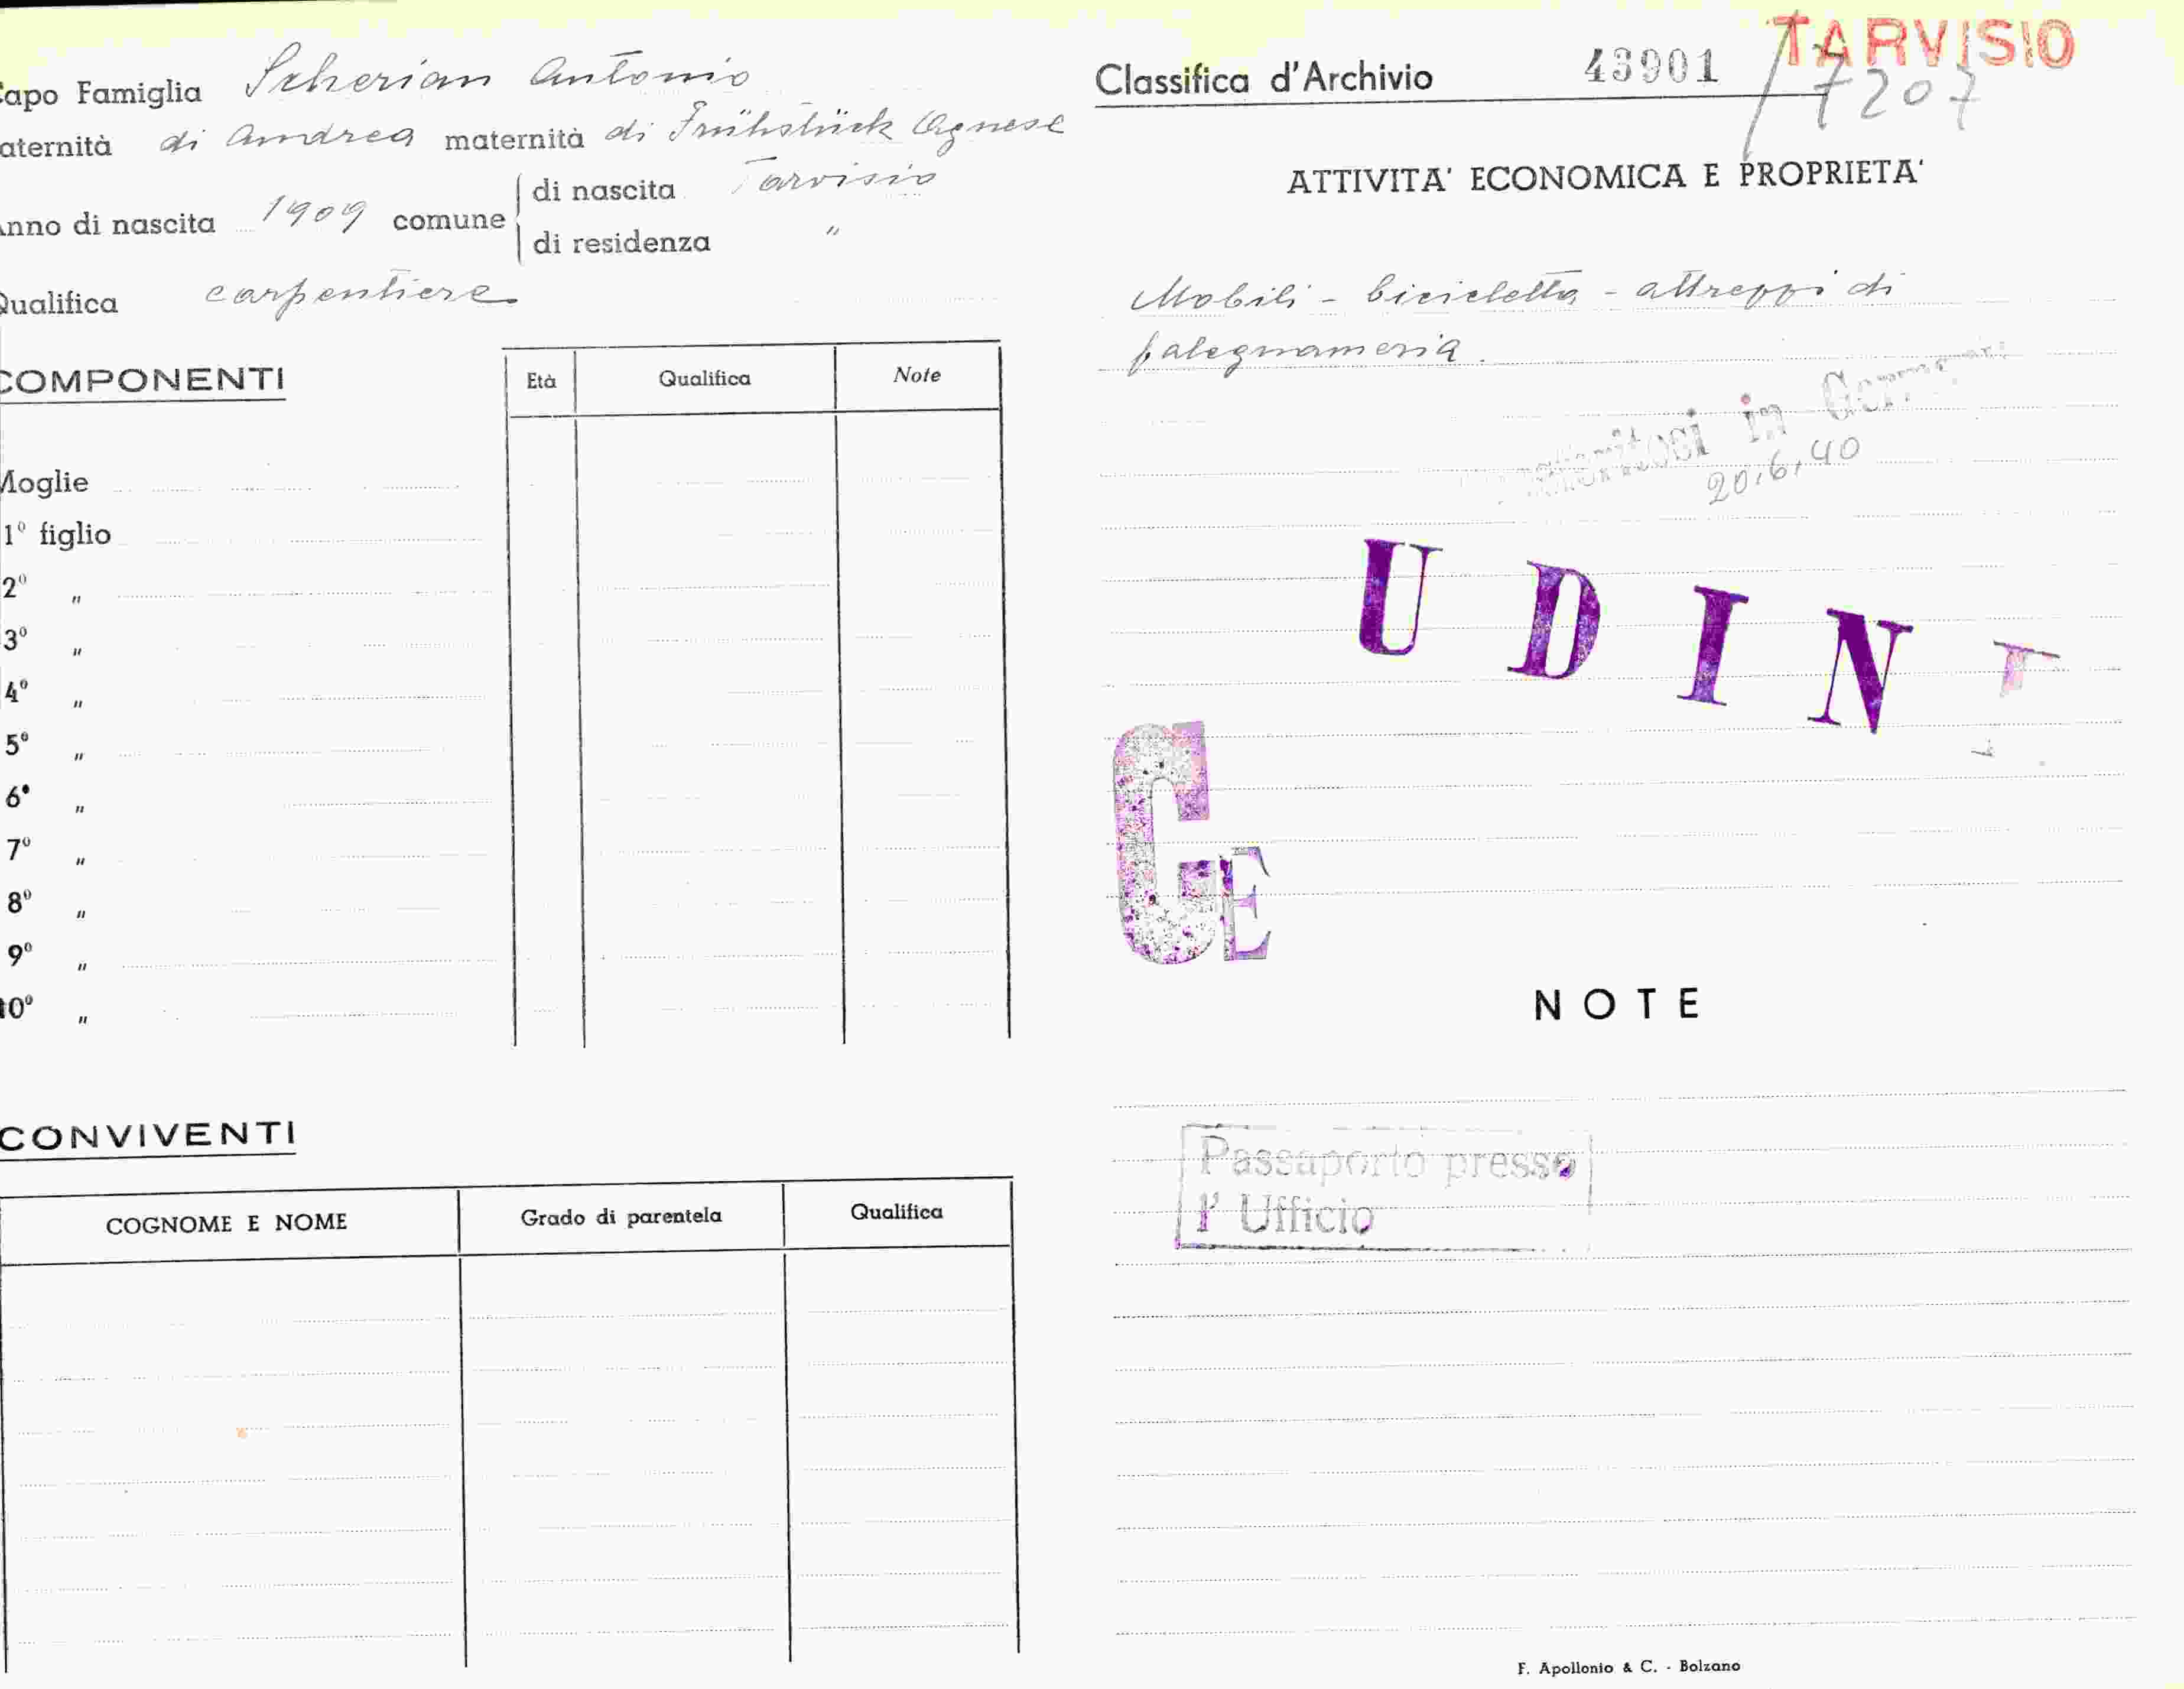 apo Famiglia Scherian Antonio
aternità di Andrea maternità di Frühstück Agnese
nno di nascita 1909 comune di nascita Tarvisio
di residenza "
Qualifica carpentiere
COMPONENTI
Età Qualifica Note
Moglie
1º figlio
2º "
3º "
4º "
5º "
6º "
7º "
8º "
9º "
10º "
CONVIVENTI
COGNOME E NOME Grado di parentela Qualifica
TARVISIO
Classifica d'Archivio 43901 / 7207
ATTIVITA' ECONOMICA E PROPRIETA'
Mobili - bicicletta - attrezzi di
falegnameria.
in
20.6.40
UDIN
G E
NOTE
Passaporto presso
l' Ufficio
F. Apollonio & C. - Bolzano